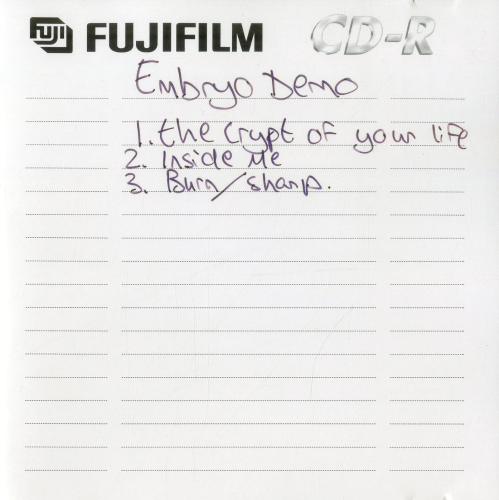 FUJI FUJIFILM CD-R
Embryo Demo
1. the crypt of your life
2. Inside Me
3. Burn/sharp.